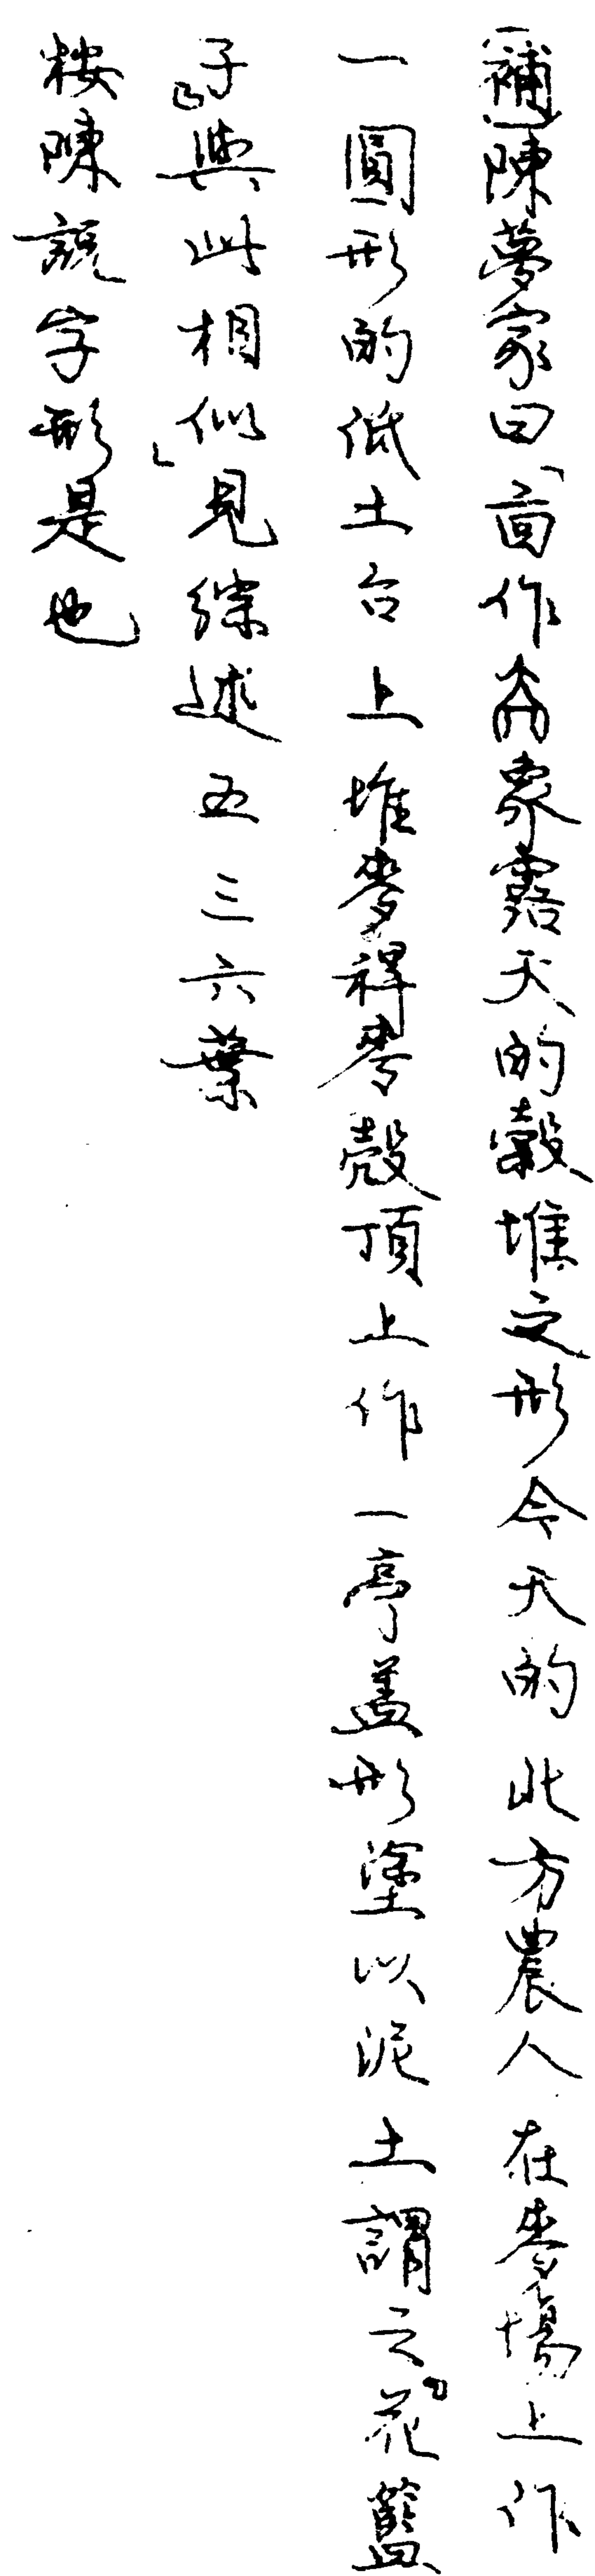 〔補〕陳夢家曰「㐭作象露天的穀堆之形今天的北方農人在麥場上作
一圓形的低土台上堆麥稈麥殼頂上作一亭蓋形塗以泥土謂之『花籃
子』與此相似」見綜述五三六葉
按陳説字形是也